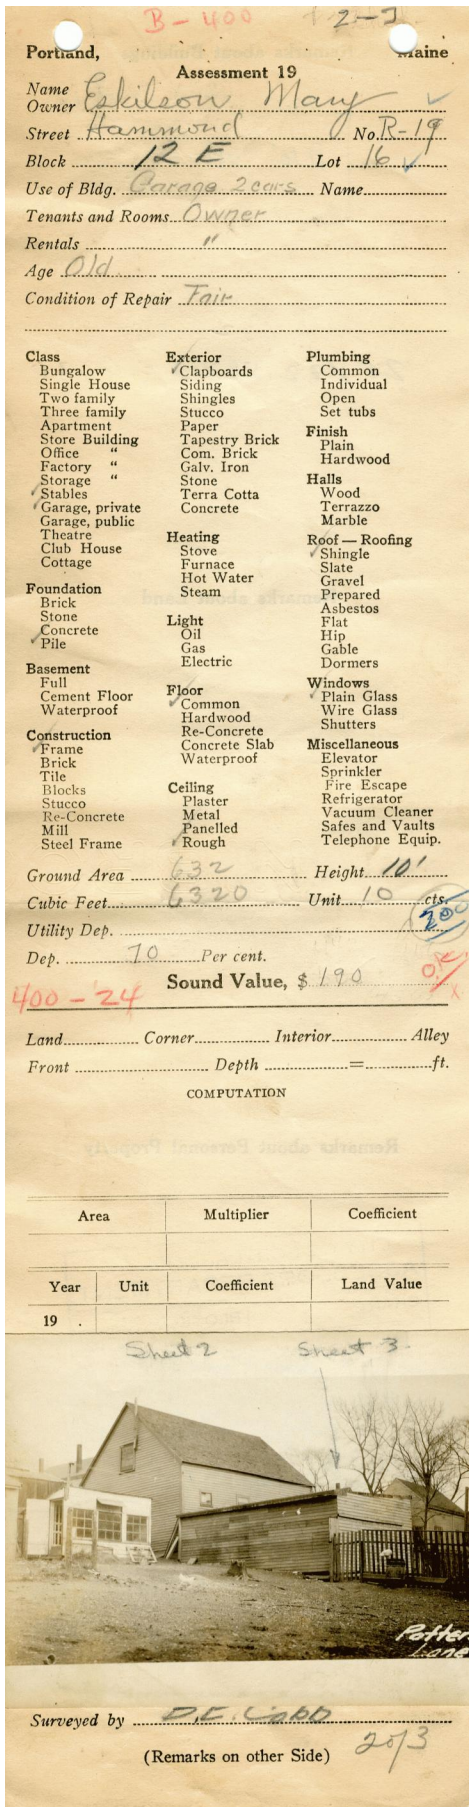 B-400 2-3
Portland, Maine
Assessment 19
Name
Owner Eskilson, Mary
Street Hammond No. R-19
Block 12 E Lot 16
Use of Bldg. Garage 2 cars Name
Tenants and Rooms Owner
Rentals "
Age Old
Condition of Repair Fair
Class
Bungalow
Single House
Two family
Three family
Apartment
Store Building
Office "
Factory "
Storage "
Stables
Garage, private
Garage, public
Theatre
Club House
Cottage
Foundation
Brick
Stone
Concrete
Pile
Basement
Full
Cement Floor
Waterproof
Construction
Frame
Brick
Tile
Blocks
Stucco
Re-Concrete
Mill
Steel Frame
Exterior
Clapboards
Siding
Shingles
Stucco
Paper
Tapestry Brick
Com. Brick
Galv. Iron
Stone
Terra Cotta
Concrete
Heating
Stove
Furnace
Hot Water
Steam
Light
Oil
Gas
Electric
Floor
Common
Hardwood
Re-Concrete
Concrete Slab
Waterproof
Ceiling
Plaster
Metal
Panelled
Rough
Plumbing
Common
Individual
Open
Set tubs
Finish
Plain
Hardwood
Halls
Wood
Terrazzo
Marble
Roof — Roofing
Shingle
Slate
Gravel
Prepared
Asbestos
Flat
Hip
Gable
Dormers
Windows
Plain Glass
Wire Glass
Shutters
Miscellaneous
Elevator
Sprinkler
Fire Escape
Refrigerator
Vacuum Cleaner
Safes and Vaults
Telephone Equip.
Ground Area 632 Height 10'
Cubic Feet 6320 Unit 10 cts.
200
Utility Dep.
Dep. 70 Per cent.
Sound Value, $ 190
400-24
Land Corner Interior Alley
Front Depth = ft.
COMPUTATION
Area Multiplier Coefficient
Year Unit Coefficient Land Value
19 .
Sheet 2 Sheet 3
Potter
Lane
Surveyed by D.E. Cobb
(Remarks on other Side) 2 of 3